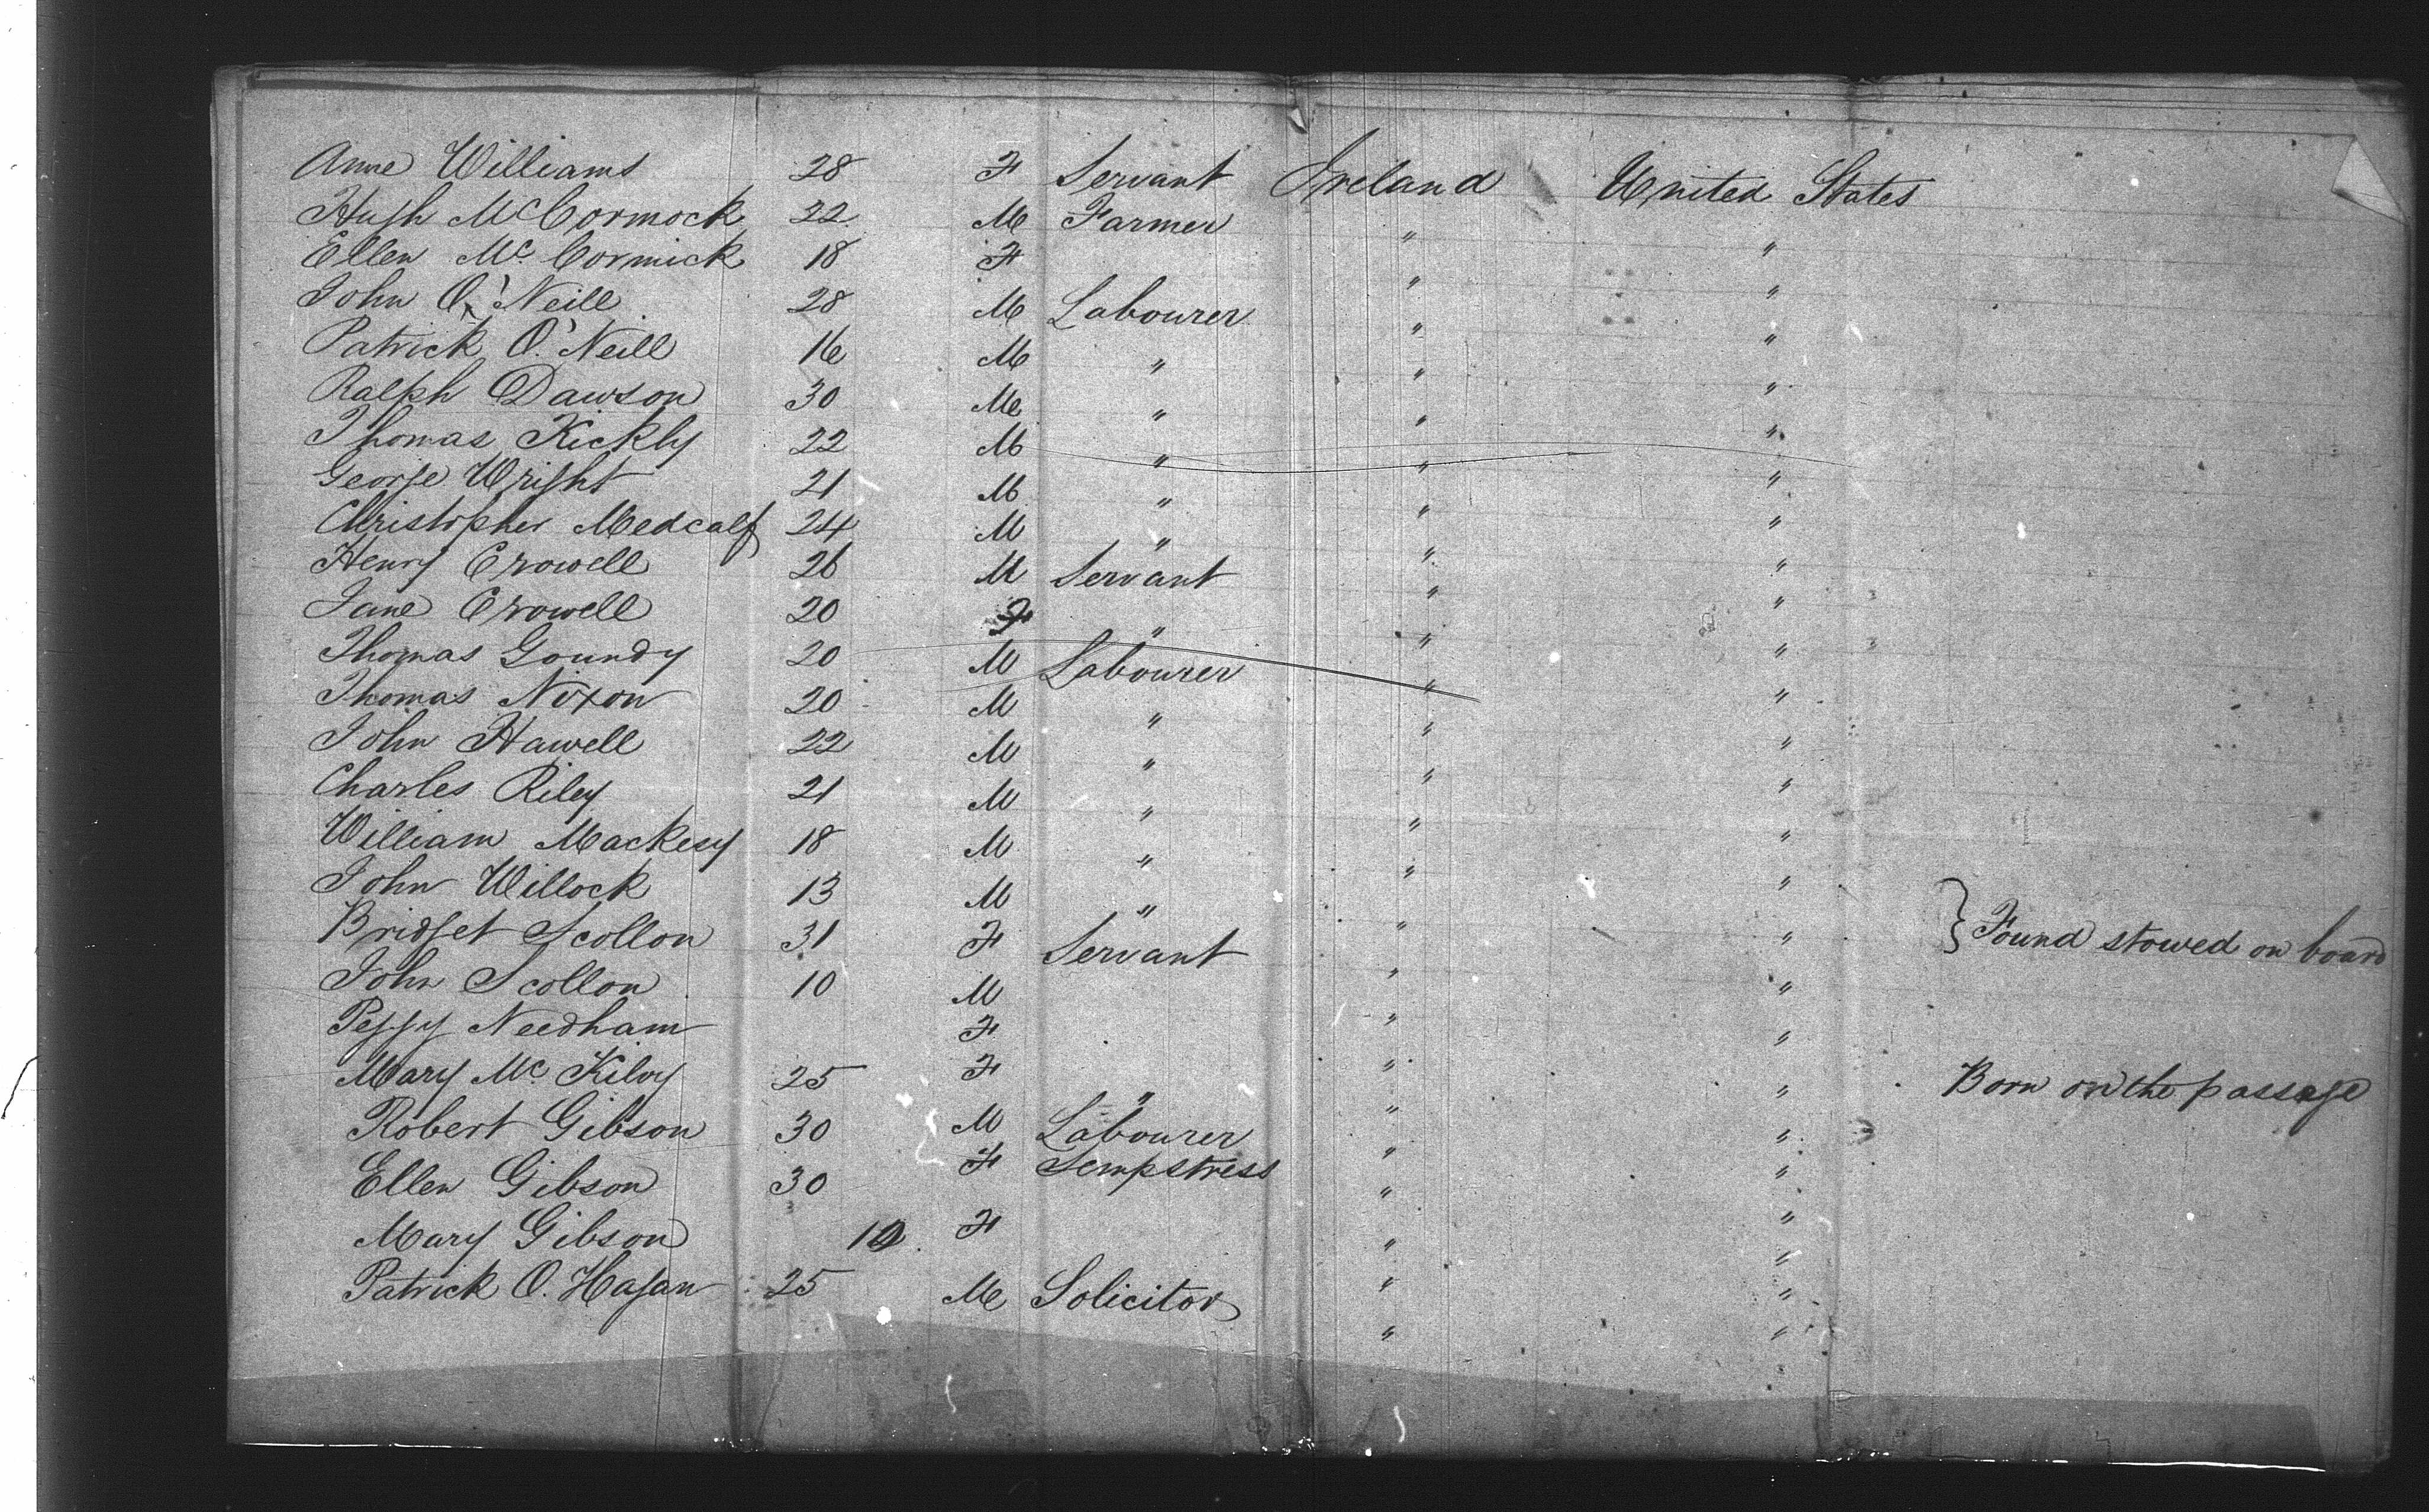 Anne Williams 28 F Servant Ireland United States
Hugh McCormock 22 M Farmer " "
Ellen McCormick 18 F " "
John O'Neill 28 M Labourer " "
Patrick O'Neill 16 M " " "
Ralph Dawson 30 M " " "
Thomas Kickly 22 M " " "
George Wright 21 M " " "
Christopher Medcalf 24 M " " "
Henry Crowell 26 M Servant " "
Jane Crowell 20 F " " "
Thomas Goundy 20 M Labourer " "
Thomas Nixon 20 M " " "
John Hawell 22 M " " "
Charles Riley 21 M " " "
William Mackesy 18 M " " "
John Willock 13 M " " "
Bridget Scollon 31 F Servant " " } Found stowed on board
John Scollon 10 M " "
Peggy Needham F " " Born on the passage
Mary Mc 25 F " " "
Robert Gibson 30 M Labourer " "
Ellen Gibson 30 F Sempstress " "
Mary Gibson 10 F " "
Patrick O. Hagan 25 M Solicitor " "